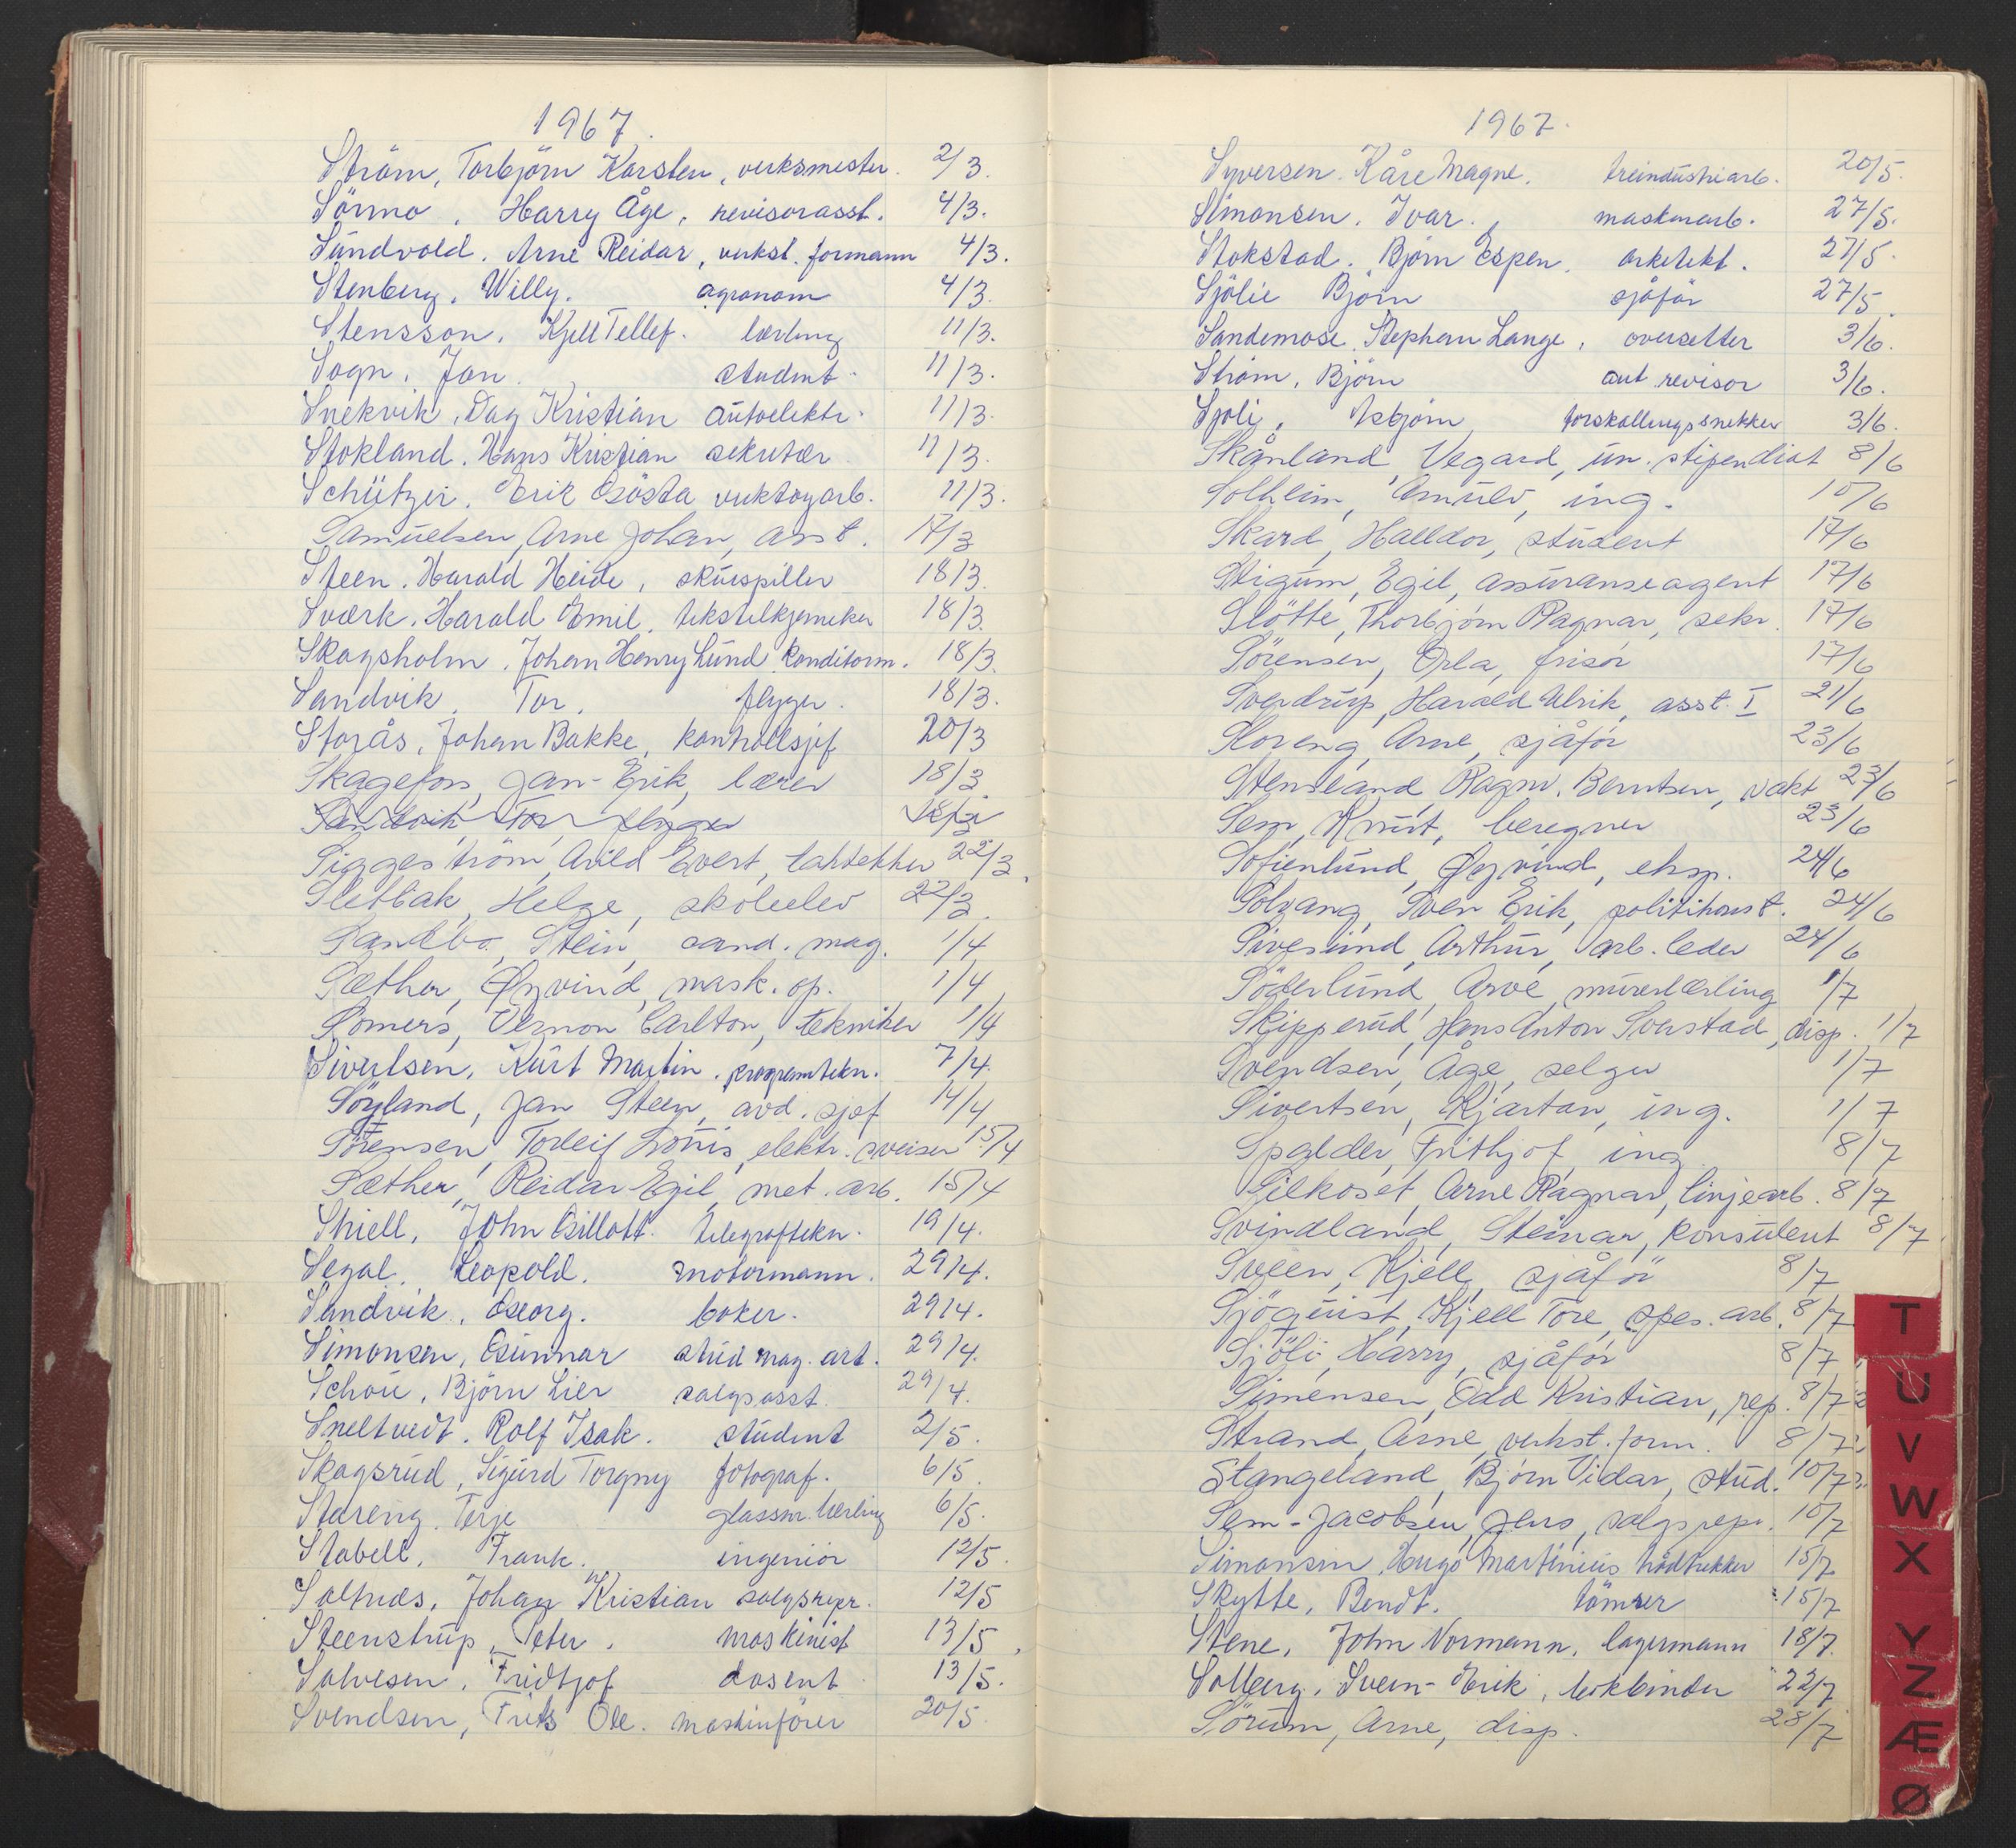 1967.
Ström, Torbjörn Karsten, verksmester. 2/3.
Sörmo, Harry Åge, revisorasst. 4/3.
Sundvold. Arne Reidar, verkst. formann 4/3.
Stenberg, Willy. agronom 4/3.
Stensson, Kjell Tellef. lærling 11/3.
Sogn, Jan. student. 11/3.
Snekvik, Dag Kristian autoelektr. 11/3.
Stokland. Hans Kristian sekretær 11/3.
Schützer. Erik Gösta verktøyarb. 11/3.
Samuelsen, Arne Johan, asst. 17/3
Steen. Harald Heide, skuespiller 18/3.
Sværk. Harald Emil, tekstilkjemiker 18/3.
Skogsholm, Johan Henry Lund konditorm. 18/3.
Sandvik, Tor, flyger. 18/3.
Storås, Johan Bakke, kontrollsjef 20/3
Skagefoss, Jan-Erik, lærer 18/3
Sandvik, Tor, flyger
Siggeström, Arild Evert, taktekker 22/3.
Sletbak, Helge, skoleelev 22/3.
Sandbo, Stein, cand. mag. 1/4
Sæther, Øyvind, mask. op. 1/4
Somers, Vernon Carlton, tekniker 1/4
Sivertsen, Kurt Martin. programtekn. 7/4.
Söyland, Jan Steen, avd. sjef 14/4
Sörensen, Torleif Louis, elektr. sveiser 15/4
Sæther, Reidar Egil, met. arb. 15/4
Shiell, John Gillott. telegraftekn. 19/4.
Segal. Leopold. motormann. 29/4.
Sandvik, Georg. baker. 29/4.
Simonsen, Gunnar stud mag. art. 29/4.
Schou, Björn Lier salgsasst. 29/4.
Sneltvedt. Rolf Isak. student 2/5.
Skogsrud, Sigurd Torgny fotograf. 6/5.
Stareng. Terje glassm. lærling 6/5.
Stabell, Frank. ingeniör 12/5.
Saltnes, Johan Kristian salgsrepr. 12/5
Steenstrup, Peter, maskinist 13/5.
Salvesen, Fridtjof dosent 13/5.
Svendsen, Frits Ole. maskinförer 20/5.
1967.
Syversen. Kåre Magne. treindustriarb. 20/5.
Simonsen. Ivar. maskinarb. 27/5.
Stokstad. Björn Espen. arkitekt. 27/5.
Sjölie Björn sjåför 27/5.
Sandemose, Stephan Lange, oversetter 3/6.
Ström, Björn aut. revisor 3/6.
Sjoli, Asbjörn forskallingssnekker 3/6.
Skånland, Vegard, un. stipendiat 8/6
Solheim, Arnulv, ing. 10/6
Skard, Halldor, student 17/6
Stigum, Egil, assuranseagent 17/6
Slötte, Thorbjörn Ragnar, sekr. 17/6
Sörensen, Orla, frisör 17/6
Sverdrup, Harald Ulrik, asst. I 21/6
Storeng, Arne, sjåför 23/6
Stensland Ragnv. Berntsen, vakt 23/6
Sem, Knut, beregner 23/6
Sofienlund, Øyvind, eksp. 24/6
Solvang, Sven Erik, politikonst. 24/6
Sivesind, Arthur, arb. leder 24/6
Söderlund, Arve, murerlærling 1/7
Skipperud, Hans Anton Sverstad, disp. 1/7
Svendsen, Åge, selger 1/7
Sivertsen, Kjartan, ing. 1/7
Spalder, Frithjof, ing. 8/7
Silkoset, Arne Ragnar, linjearb. 8/7
Svindland, Steinar, konsulent 8/7.
Sveen, Kjell, sjåför 8/7
Sjöquist, Kjell Tore, spes. arb. 8/7
Sjöli, Harry, sjåför 8/7
Simensen, Odd Kristian, rep. 8/7
Strand, Arne, verkst. form. 8/7
Stangeland, Björn Vidar, stud. 10/7
Sem-Jacobsen, Jens, salgsrepr. 10/7
Simonsen, Hugo Martinius trådtrekker 15/7
Skytte, Bendt. tömrer 15/7
Stene, John Normann. lagermann 18/7.
Solberg, Svein-Erik, bokbinder 22/7
Sörum, Arne, disp. 28/7
T
U
V
W
X
Y
Z
Æ
Ø